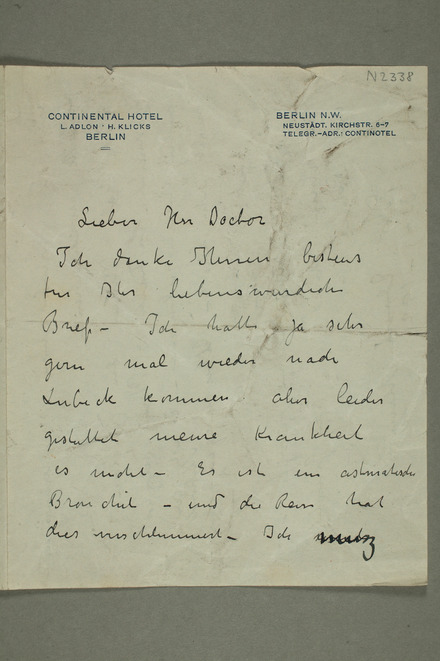 N2338
CONTINENTAL HOTEL
L. ADLON · H. KLICKS
BERLIN
BERLIN N.W.
NEUSTÄDT. KIRCHSTR. 6-7
TELEGR.-ADR.: CONTINOTEL
Lieber Herr Doctor
Ich danke Ihnen bestens
für Ihr liebenswürdiger
Brief – Ich hatte ja sehr
gern mal wieder nach
Lubeck kommen aber leider
gestattet meine Krankheit
es nicht – Es ist ein astmatischer
Bronchit – und die Reise hat
dies verschlimmert – Ich